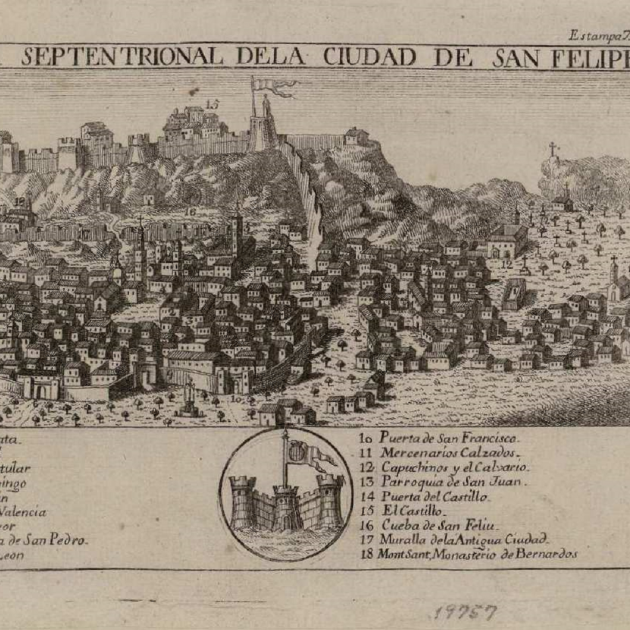 Estampa
SEPTENTRIONAL DELA CIUDAD DE SAN FELIPE
15
16
12
ata.
tular
ingo
Valencia
or
a de San Pedro.
Leon
10 Puerta de San Francisco.
11 Mercenarios Calzados.
12 Capuchinos y el Calvario.
13 Parroquia de San Juan.
14 Puerta del Castillo.
15 El Castillo.
16 Cueba de San Feliu.
17 Muralla dela Antigua Ciudad.
18 MontSant, Monasterio de Bernardos
19757